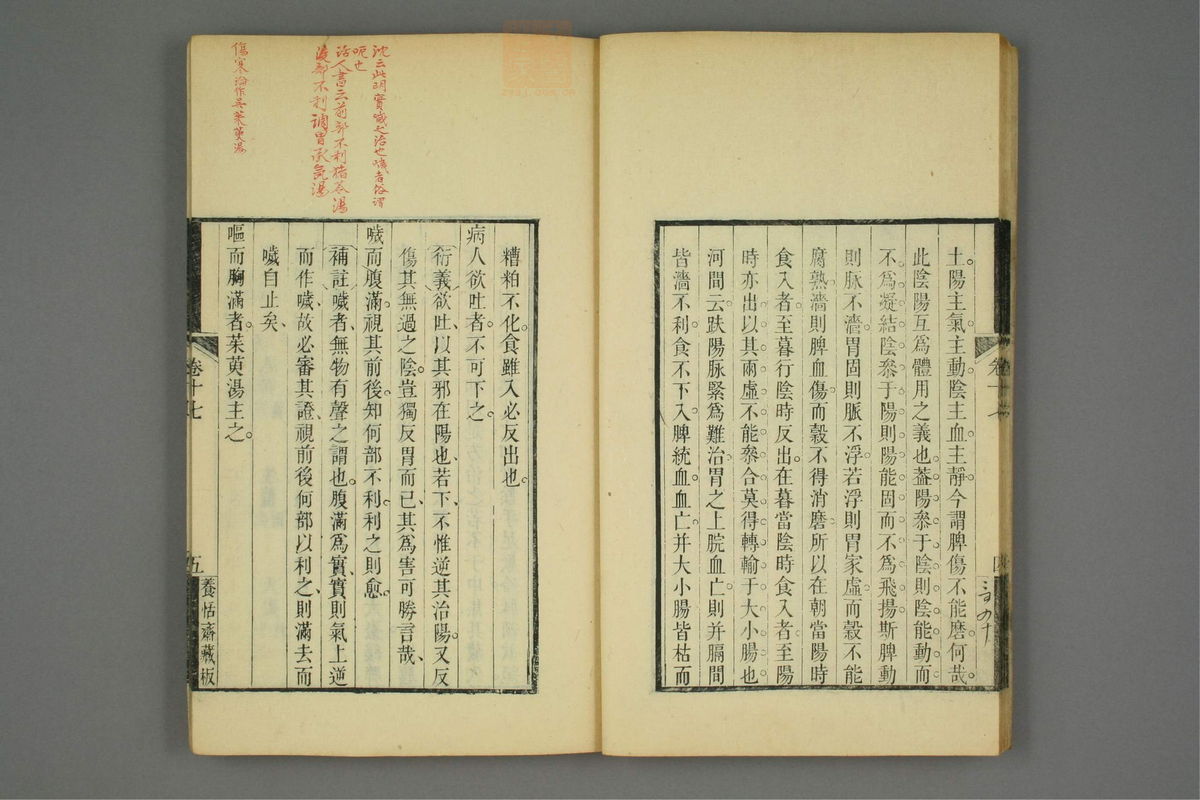 土陽主氣主動陰主血主靜今謂脾傷不能磨何哉
此陰陽互爲體用之義也葢陽叅于陰則陰能動而
不爲凝結陰叅于陽則陽能固而不爲飛揚斯脾動
則脈不濇胃固則脈不浮若浮則胃家虛而榖不能
腐熟濇則脾血傷而榖不得消磨所以在朝當陽時
食入者至暮行陰時反出在暮當陰時食入者至陽
時亦出以其兩虛不能叅合莫得轉輸于大小腸也
河間云趺陽脈緊爲難治胃之上脘血亡則并膈間
皆濇不利食不下入脾統血血亡并大小腸皆枯而
卷十七
四
糟粕不化食雖入必反出也
病人欲吐者不可下之
衍義欲吐以其邪在陽也若下不惟逆其治陽又反
傷其無過之陰豈獨反胃而已其爲害可勝言哉
噦而腹滿視其前後知何部不利利之則愈
補註噦者無物有聲之謂也腹滿爲實實則氣上逆
而作噦故必審其證視前後何部以利之則滿去而
噦自止矣
嘔而胸滿者茱萸湯主之
卷十七
五
養恬齋藏板
沈云此明實噦之治也噦者俗謂
呃也
活人書云前部不利猪苓湯
後部不利調胃承氣湯
傷寒論作吳茱萸湯